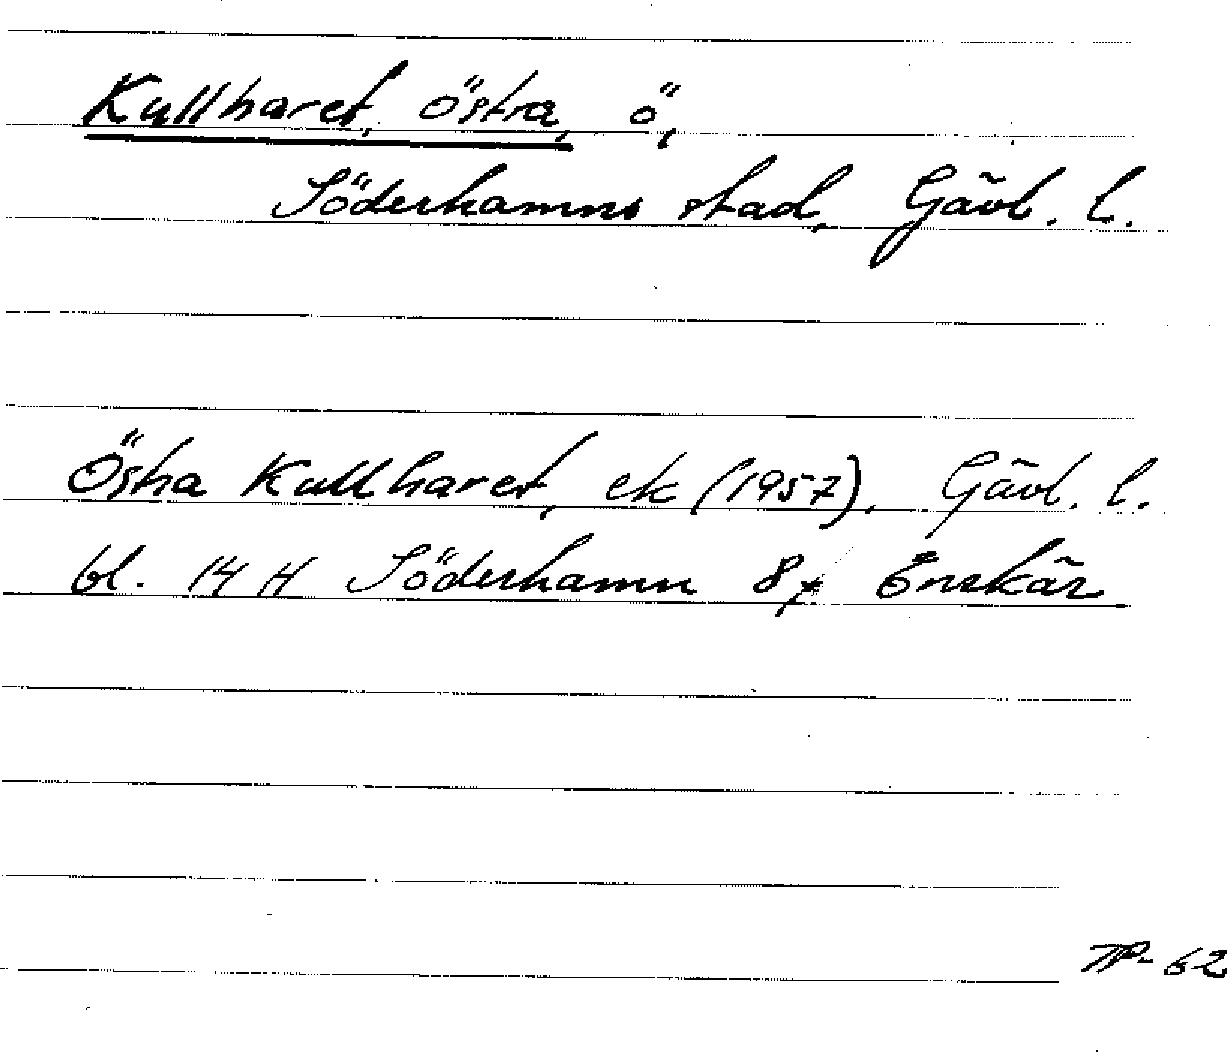 Kullharet, östra, ö,
Söderhamns stad, Gävl. l.
Östra Kullharet, ek (1957), Gävl. l.
bl. 14 H Söderhamn 8f Enskär
TP-62